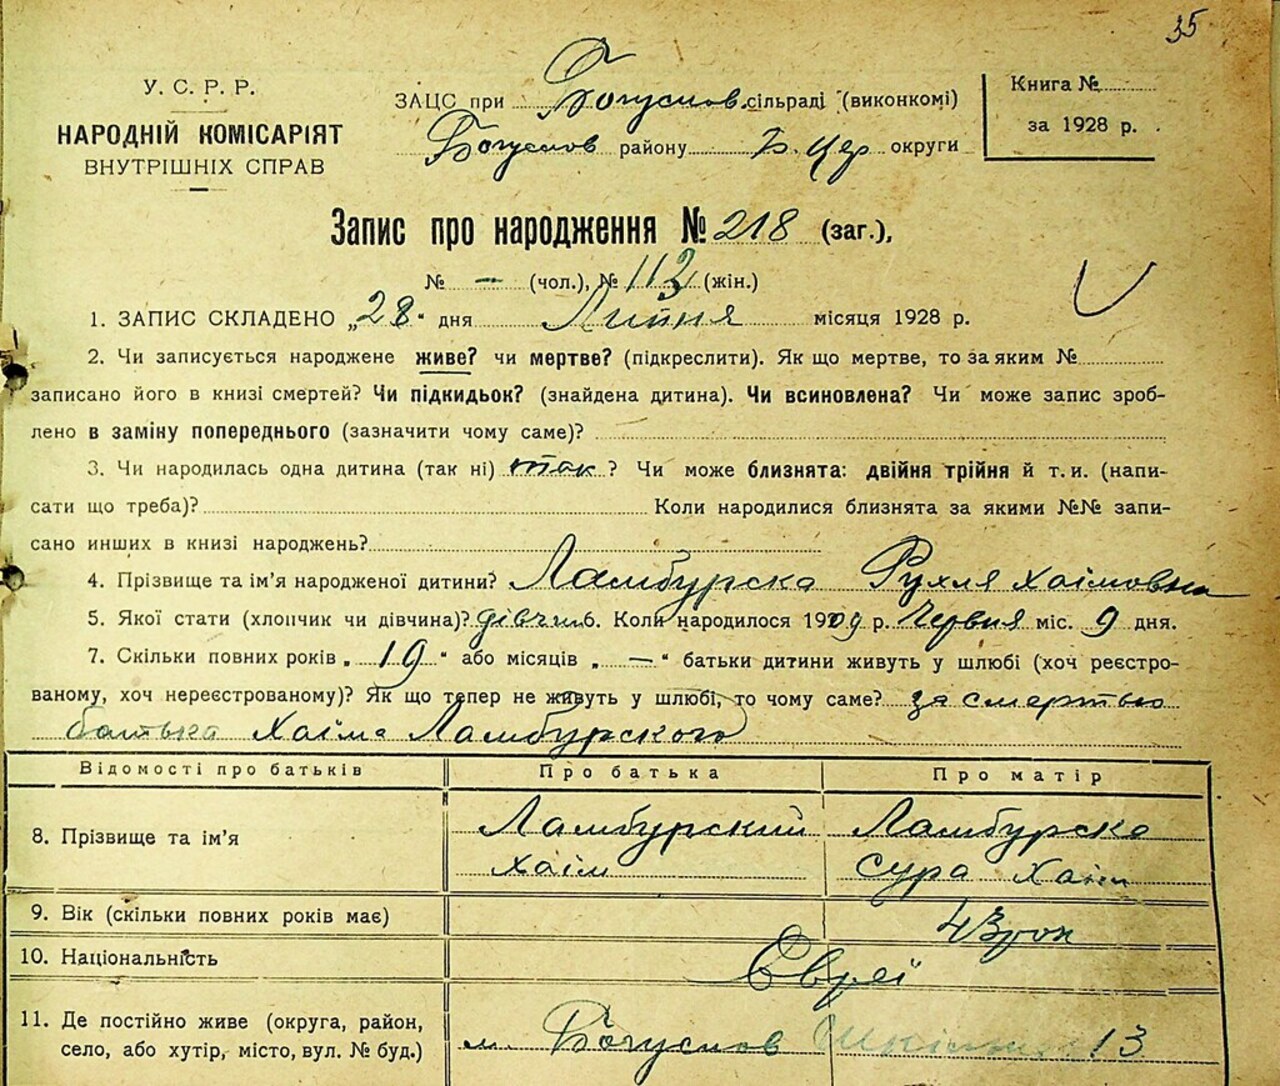 35
У. С. Р. Р.
НАРОДНІЙ КОМІСАРІЯТ
ВНУТРІШНІХ СПРАВ
ЗАЦС при Богуслов. сільраді (виконкомі)
Богуслов району Б. Цер округи
Книга №
за 1928 р.
Запис про народження № 218 (заг.),
№ – (чол.), № 113 (жін.)
1. ЗАПИС СКЛАДЕНО „28“ дня Липня місяця 1928 р.
2. Чи записується народжене живе? чи мертве? (підкреслити). Як що мертве, то за яким №
записано його в книзі смертей? Чи підкидьок? (знайдена дитина). Чи всиновлена? Чи може запис зроб-
лено в заміну попереднього (зазначити чому саме)?
3. Чи народилась одна дитина (так ні) так ? Чи може близнята: двійня трійня й т. и. (напи-
сати що треба)? Коли народилися близнята за якими №№ запи-
сано инших в книзі народжень?
4. Прізвище та ім’я народженої дитини? Ламбурска Рухля Хаімовна
5. Якої стати (хлопчик чи дівчина)? дівчин 6. Коли народилося 1909 р. Червня міс. 9 дня.
7. Скільки повних років „19“ або місяців „—“ батьки дитини живуть у шлюбі (хоч реєстро-
ваному, хоч нереєстрованому)? Як що тепер не живуть у шлюбі, то чому саме? за смертью
батька Хаіма Ламбурского
Відомості про батьків Про батька Про матір
8. Прізвище та ім’я Ламбурский Ламбурска
Хаім Сура Хаім
9. Вік (скільки повних років має) 43 рок
10. Національність Евреї
11. Де постійно живе (округа, район,
село, або хутір, місто, вул. № буд.) м. Богуслов 13